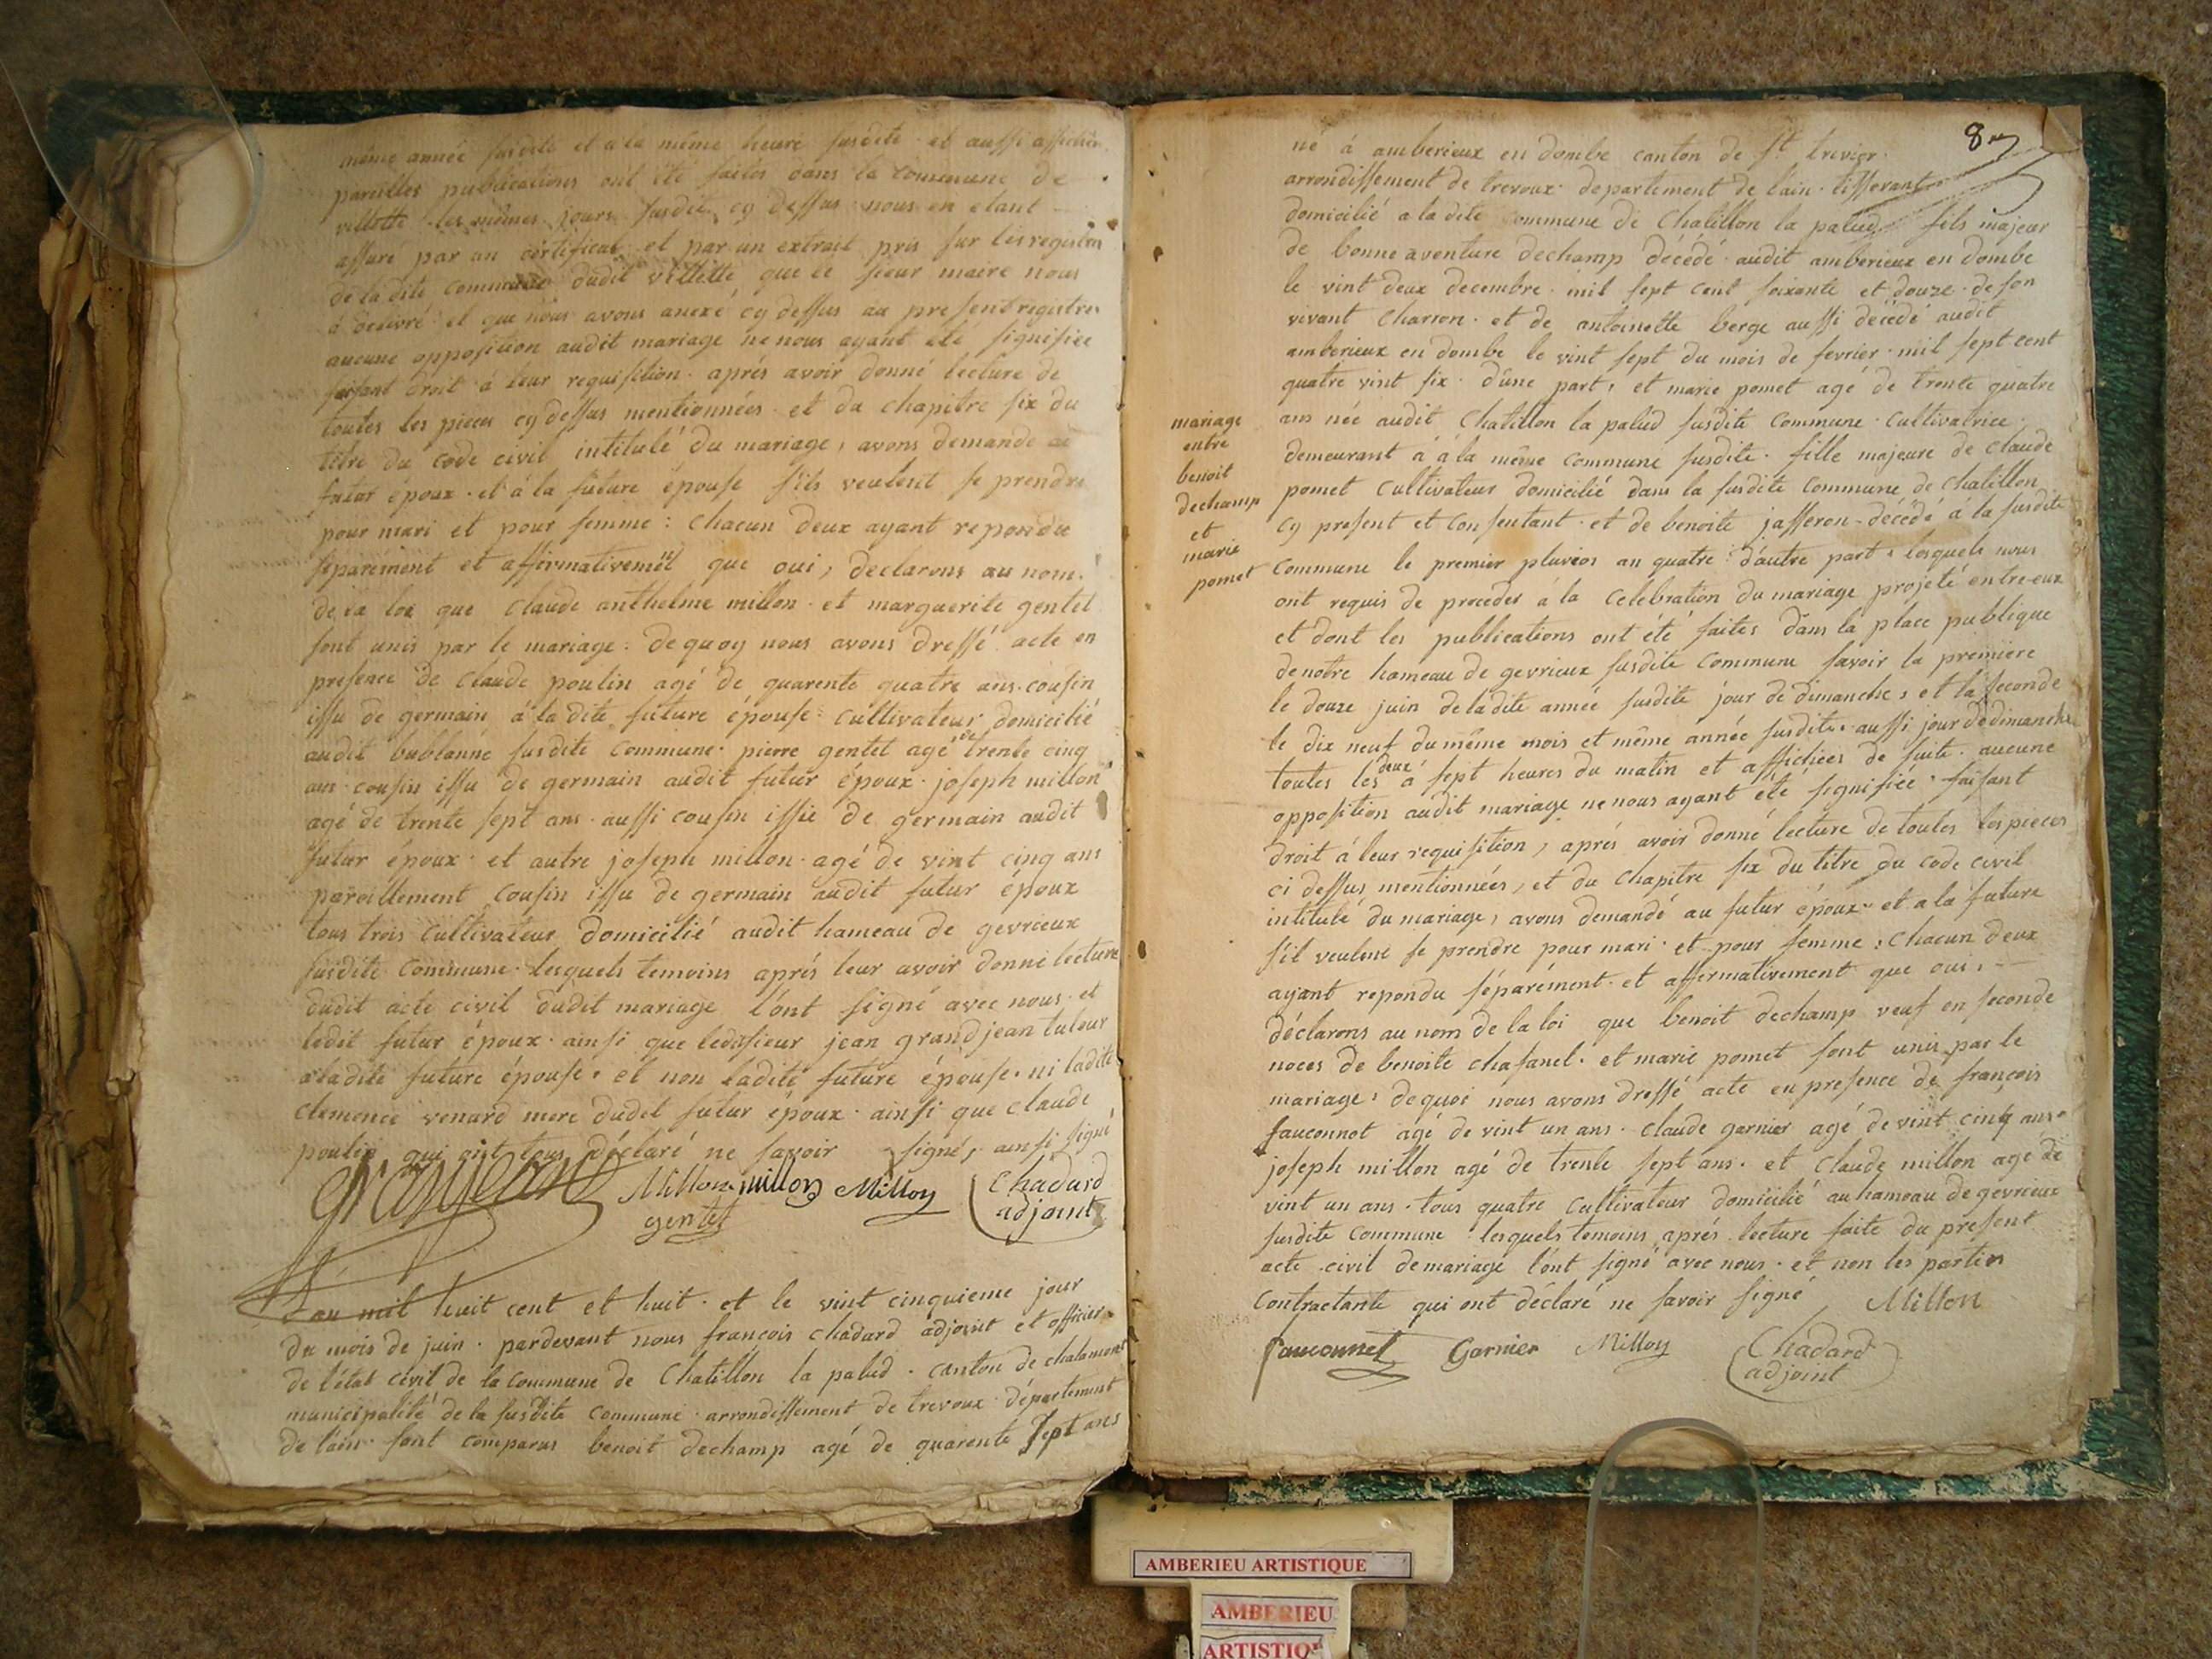 même année susdite et a la même heure susdite et aussi affichée
pareilles publications ont été faites dans la commune de
villette les mêmes jours susdit cy dessus nous en etant
assuré par un certificat et par un extrait pris sur les registres
de la dite commune dudit villette que le sieur maire nous
a delivré et que nous avons anexé cy dessus au present registre
aucune opposition audit mariage ne nous ayant été signifiée
faisant droit à leur requisition après avoir donné lecture de
toutes les pieces cy dessus mentionnées et du chapitre six du
titre du code civil intitulé du mariage, avons demandé au
futur époux et à la future épouse s'ils veulent se prendre
pour mari et pour femme : chacun deux ayant repondu
séparément et affirmativemet que oui, declarons au nom
de la loi que claude anthelme millon et marguerite gentet
sont unis par le mariage : de quoy nous avons dressé acte en
presence de claude poulin agé de quarente quatre ans cousin
issu de germain à la dite future épouse cultivateur domicilié
audit bublanne susdite commune pierre gentet agé de trente cinq
ans cousin issu de germain audit futur époux joseph millon
agé de trente sept ans aussi cousin issu de germain audit
futur époux et autre joseph millon agé de vint cinq ans
pareillement cousin issu de germain audit futur époux
tous trois cultivateur domicilié audit hameau de gevrieux
susdite commune lesquels temoins après leur avoir donné lecture
dudit acte civil dudit mariage l'ont signé avec nous et
ledit futur époux ainsi que ledit sieur jean grandjean tuteur
a ladite future épouse et non ladite future épouse ni ladite
clemence venard mere dudit futur époux ainsi que claude
poulin qui ont tous déclaré ne savoir signé, ainsi signé
Grandjean Millon millon Millon Chadard
gentet adjoint
L'an mil huit cent et huit et le vint cinquieme jour
du mois de juin pardevant nous françois chadard adjoint et officier
de l'état civil de la commune de Chatillon la palud canton de chalamont
municipalité de la susdite commune arrondissement de trevoux département
de l'ain sont comparus benoit dechamp agé de quarente sept ans
8
né à amberieux en dombe canton de st trevier
arrondissement de trevoux departement de l'ain tisserant
domicilié a la dite commune de Chatillon la palud fils majeur
de bonneaventure dechamp décédé audit amberieux en dombe
le vint deux decembre mil sept cent soixante et douze de son
vivant charron et de antoinette berge aussi décédé audit
amberieux en dombe le vint sept du mois de fevrier mil sept cent
quatre vint six d'une part, et marie pomet agé de trente quatre
ans née audit Chatillon la palud susdite commune cultivatrice
demeurant à à la même commune susdite fille majeure de claude
pomet cultivateur domicilié dans la susdite commune de chatillon
cy present et consentant et de benoite jasseron décédé à la susdite
commune le premier pluvios an quatre d'autre part, lesquels nous
ont requis de proceder à la celebration du mariage projeté entre eux
et dont les publications ont été faites dans la place publique
de notre hameau de gevrieux susdite commune savoir la premiere
le douze juin de la dite année susdite jour de dimanche, et la seconde
le dix neuf du même mois et même année susdite aussi jour de dimanche
toutes les deux à sept heures du matin et affichées de suite aucune
opposition audit mariage ne nous ayant été signifiée faisant
droit à leur requisition, après avoir donné lecture de toutes les pieces
ci dessus mentionnées, et du chapitre six du titre du code civil
intitulé du mariage, avons demandé au futur époux et a la future
s'il veulent se prendre pour mari et pour femme, chacun deux
ayant repondu séparément et affirmativement que oui,
déclarons au nom de la loi que benoit dechamp veuf en seconde
noces de benoite chasanel et marie pomet sont unis par le
mariage, de quoi nous avons dressé acte en presence de françois
fauconnet agé de vint un ans claude garnier agé de vint cinq ans
joseph millon agé de trente sept ans et claude millon agé de
vint un ans tous quatre cultivateur domicilié au hameau de gevrieux
susdite commune lesquels temoins après lecture faite du present
acte civil de mariage l'ont signé avec nous et non les parties
contractante qui ont déclaré ne savoir signé Millon
fauconnet Garnier Millon Chadard
adjoint
mariage
entre
benoit
dechamp
et
marie
pomet
AMBERIEU ARTISTIQUE
AMBERIEU
ARTISTIQU